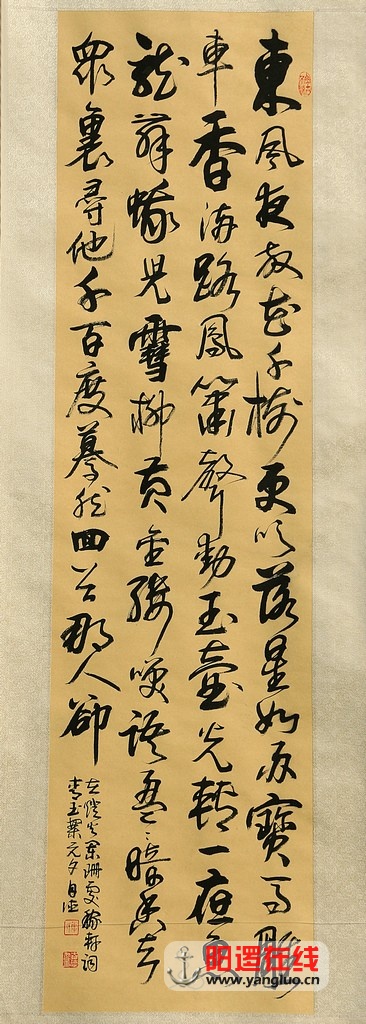 東風夜放花千樹更吹落星如雨寶馬雕
車香滿路鳳簫聲動玉壺光轉一夜魚
龍舞蛾兒雪柳黃金縷笑語盈〻暗香去
眾裏尋他千百度驀然回首那人卻
在燈火闌珊處稼軒詞
青玉案元夕
阳逻在线
www.yangluo.cn